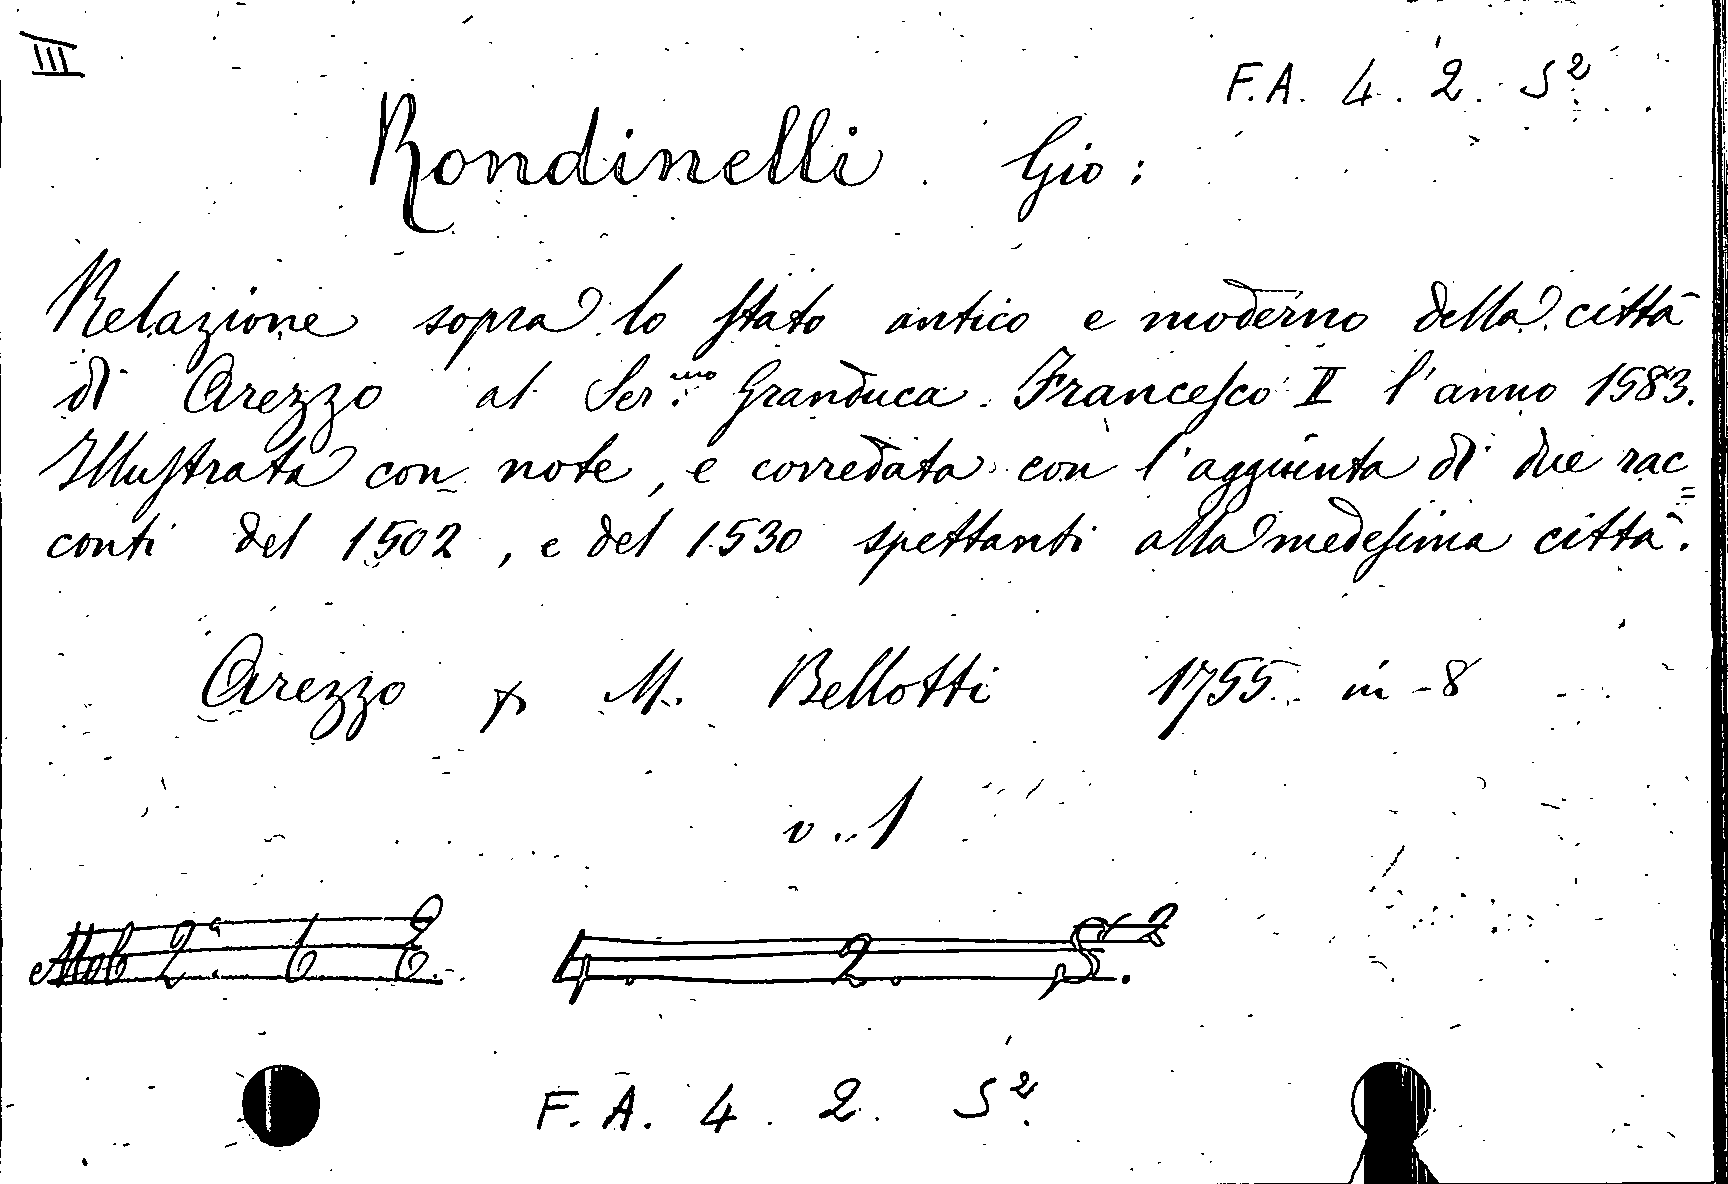 III
F.A. 4. 2. S²
Rondinelli Gio:
Relazione sopra lo stato antico e moderno della città
di Arezzo al Ser.mo Granduca Francesco II l'anno 1583.
Illustrata con note, e corredata con l'aggiunta di due rac=
conti del 1502, e del 1530 spettanti alla medesima città.
Arezzo x M. Bellotti 1755. in-8
v. 1
2ª 6 2. 2. S. 2
F. A. 4. 2. S²